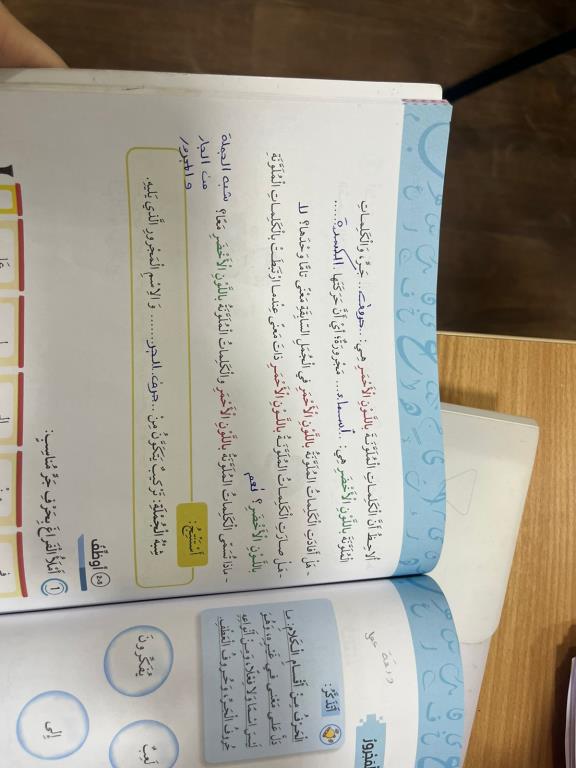 أُلاحِظُ أَنَّ الْكَلِماتِ الْمُلَوَّنَةَ بِاللَّوْنِ الْأَحْمَرِ هِيَ: ..حروف.. جَرٍّ، وَالْكَلِماتِ
الْمُلَوَّنَةَ بِاللَّوْنِ الْأَخْضَرِ هِيَ: ..أسماء.... مَجْرورَةٌ؛ أَيْ أَنَّ حَرَكَتَها .الكسرة......
- هَلْ أَفادَتِ الْكَلِماتُ الْمُلَوَّنَةُ بِاللَّوْنِ الْأَحْمَرِ في الْجُمَلِ السّابِقَةِ مَعْنًى تامًّا وَحْدَها؟ لا
- هَلْ صارَتِ الْكَلِماتُ الْمُلَوَّنَةُ بِاللَّوْنِ الْأَحْمَرِ ذاتَ مَعْنًى عِنْدَما ارْتَبَطَتْ بِالْكَلِماتِ الْمُلَوَّنَةِ
بِاللَّوْنِ الْأَخْضَرِ؟ نعم
- ماذا تُسَمّى الْكَلِماتُ الْمُلَوَّنَةُ بِاللَّوْنِ الْأَحْمَرِ والْكَلِماتُ الْمُلَوَّنَةُ بِاللَّوْنِ الْأَخْضَرِ مَعًا؟ شبه الجملة
من الجار
والمجرور
أَسْتَنْتِجُ:
شِبْهُ الْجُمْلَةِ: تَرْكيبٌ يَتَكَوَّنُ مِنْ ...حرف الجر....... وَالِاسْمِ الْمَجْرورِ الَّذي يَليهِ.
أُوَظِّفُ
1 أَمْلَأُ الْفَراغَ بِحَرْفِ جَرٍّ مُناسِبٍ:
أَتَذَكَّرُ:
الْحَرْفُ مِنْ أَقْسامِ الْكَلامِ: ما
دَلَّ عَلى مَعْنًى في غَيْرِهِ، وَهُوَ
لَيْسَ اسْمًا وَلا فِعْلًا، وَمِنْ أَنْواعِهِ
حُروفُ الْجَرِّ، وَحُروفُ الْعَطْفِ.
يُفَكِّرونَ
إِلى
لَعِبَ